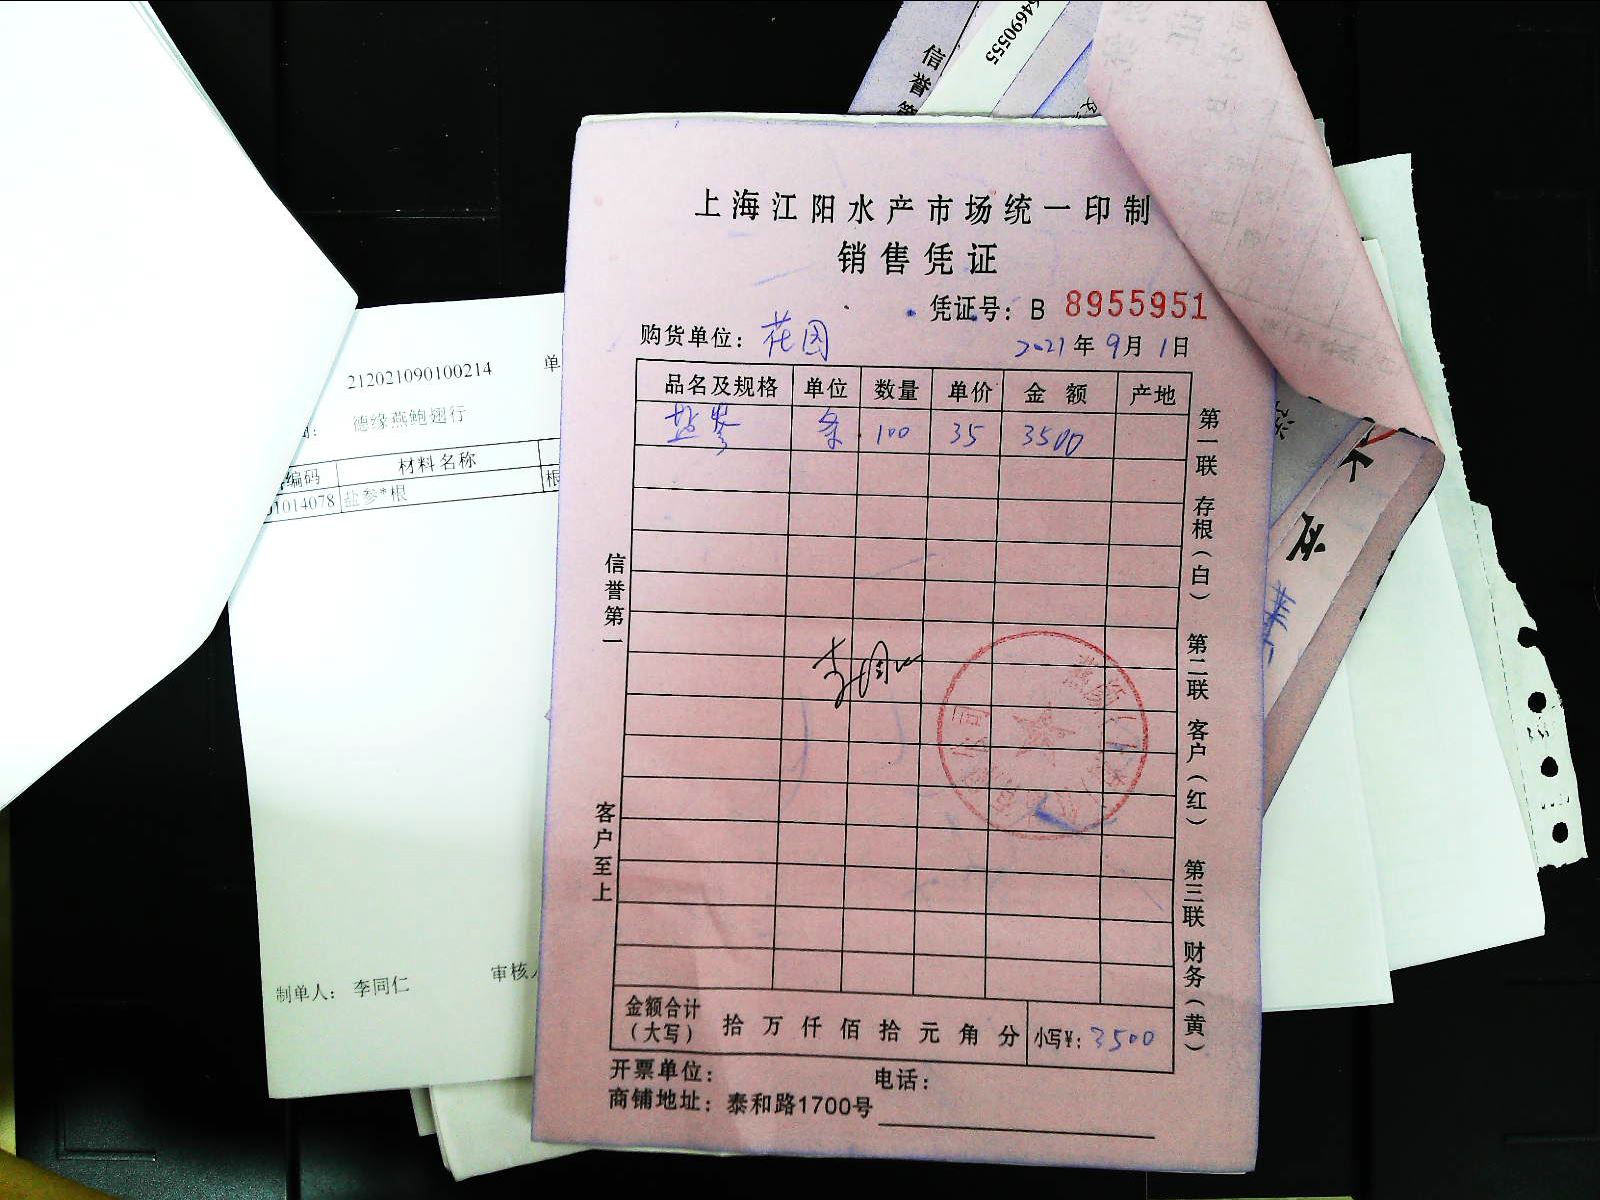 上海江阳水产市场统一印制
销售凭证
凭证号：B 8955951
购货单位：花园
2021年9月1日
品名及规格 单位 数量 单价 金 额 产地
盐参 条 100 35 3500
信誉第一
客户至上
第一联 存根（白） 第二联 客户（红） 第三联 财务（黄）
金额合计（大写） 拾 万 仟 佰 拾 元 角 分 小写¥：3500
开票单位： 电话：
商铺地址：泰和路1700号
212021090100214 单
德缘燕鲍翅行
编码 材料名称
01014078 盐参*根 根
制单人： 李同仁 审核
64690555
信誉第